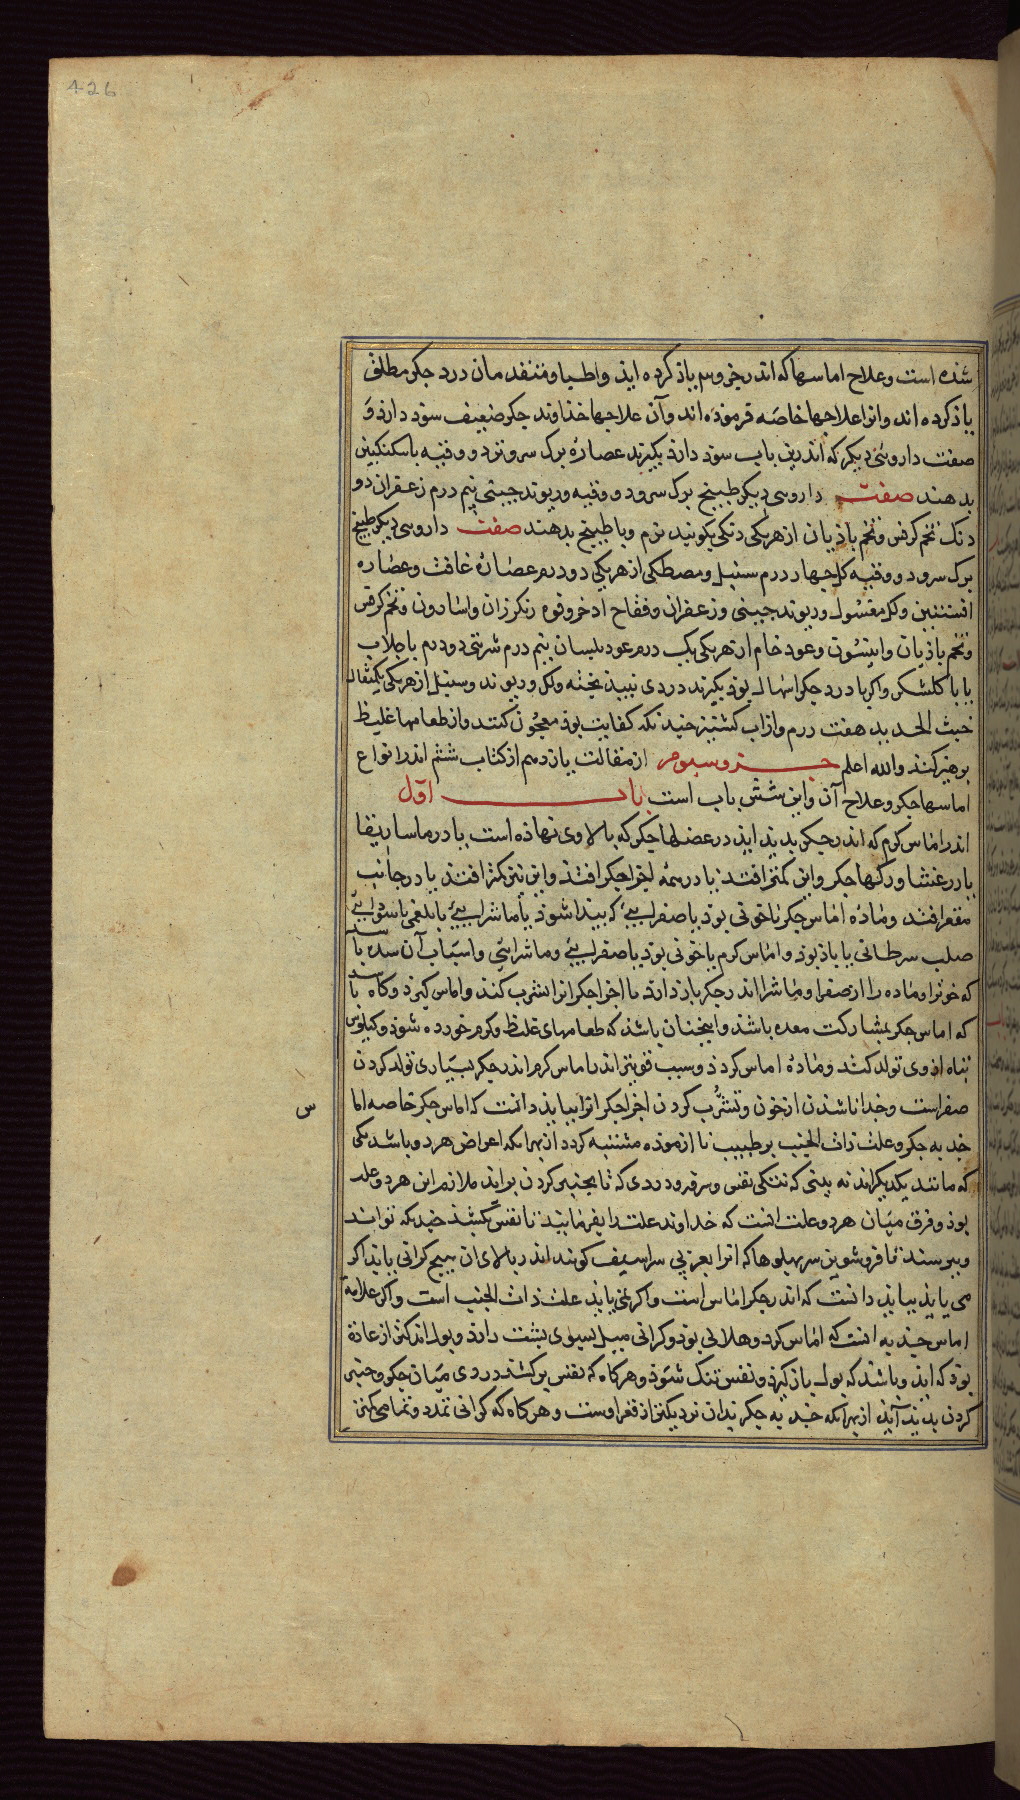 426
شده است و علاج اماسها که اندر جزو سم یاذ کرده ایذ و اطبا و متقدمان درد جکر مطلق
یاذ کرده اند و انرا علاجها خاصه فرموذه اند و آن علاجها خذاوند جکر ضعیف سوذ دارذ و
صفت داروئی دیکر که اندرین باب سوذ دارذ بکیرند عصارهٔ برک سرو تر دو وقیه با سکنکبین
بدهند صفت داروی دیکر طبیخ برک سرو دو وقیه و ریوند جینی نیم درم زعفران دو
دنک تخم کرفس و تخم باذیان از هر یکی دنکی بکوبند نرم و با طبیخ بدهند صفت داروی دیکر طبیخ
برک سرو دو وقیه کل چهار درم سنبل و مصطکی از هر یکی دو درم عصارهٔ غافت و عصاره
افسنتین و لک مغسول و ریوند جینی و زعفران و فقاح اذخر و قوه رنکرزان و اسارون و تخم کرفس
و تخم باذیان و انیسون و عود خام از هر یکی یک درم عود بلسان نیم درم شربتی دو درم با جلاب
یا با کلشکر و اکر با درد جکر اسهال بوذ بکیرند دردی نبیذ پخته و لک و ریوند و سنبل از هر یکی یکمثقال
خبث الحدید هفت درم و از اب کشنیز جندانکه کفایت بوذ معجون کنند و از طعامها غلیظ
برهیز کنند والله اعلم جزو سیوم از مقالت یازدهم از کتاب ششم اندر انواع
اماسها جکر و علاج آن و این شش باب است باب اول
اندر اماس کرم که اندر جکر بدید ایذ در عضلها جکر که بالا وی نهاذه است یا در ماساریقا
یا در غشا و رکها جکر و این کمتر افتذ یا در همه اجزا جکر افتذ و این نیز کمتر افتذ یا در جانب
مقعر افتد و مادهٔ اماس جکر یا خونی بوذ یا صفرایی
صلب سرطانی یا باذ بوذ و اماس کرم یا خونی بوذ یا صفرایی و ماشرایی و اسباب آن سده باشد
که خون را و ماده را از صفرا و ماشرا اندر جکر باز دارذ تا اجزا جکر انرا تشرب کند و اماس کیرذ و کاه باشد
که اماس جکر بمشارکت معده باشذ و ایجنان باشذ که طعامهای غلیظ و کرم خورده شوذ و کیلوس
تباه از وی تولد کند و مادهٔ اماس کردذ و سبب قویتر اندر اماس کرم اندر جکر بسیاری تولد کردن
صفراست و جدا ناشدن از خون و تشرب کردن اجزا جکر انرا ببایذ دانست که اماس جکر خاصه اماس
حدبه جکر و علت ذات الجنب بر طبیب نا ازموذه مشتبه کردد از بهر انکه اعراض هر دو باشد یکی
که مانند یکدیکراند نه بینی که تنکی نفس و سرفه و دردی که تا بجنبر کردن بر اید ملازم این هر دو علت
بوذ و فرق میان هر دو علت انست که خداوند علت را بفرمایند تا نفس بکشذ جندانکه تواند
و ببرسند تا فروسوی سر پهلوها که انرا بعربی سراسیف کویند اندر بالای ان هیج کرانی یابد اکر
می یابد ببایذ دانست که اندر جکر اماس است و اکر نمی یابد علت ذات الجنب است و اکر علامت
اماس حدبه انست که اماس کرد و هلالی بوذ و کرانی میل بسوی بشت دارذ و بول اندکتر از عادة
بوذ که ایذ و باشد که بول باز کیرذ و نفس تنک شوذ و هرکاه که نفس بر کشند دردی میان جکر و جنبر
کردن بدید آید از بهر انکه حدبه جکر بذان نزدیکتر از قعر اوست و هرکاه که کرانی
س